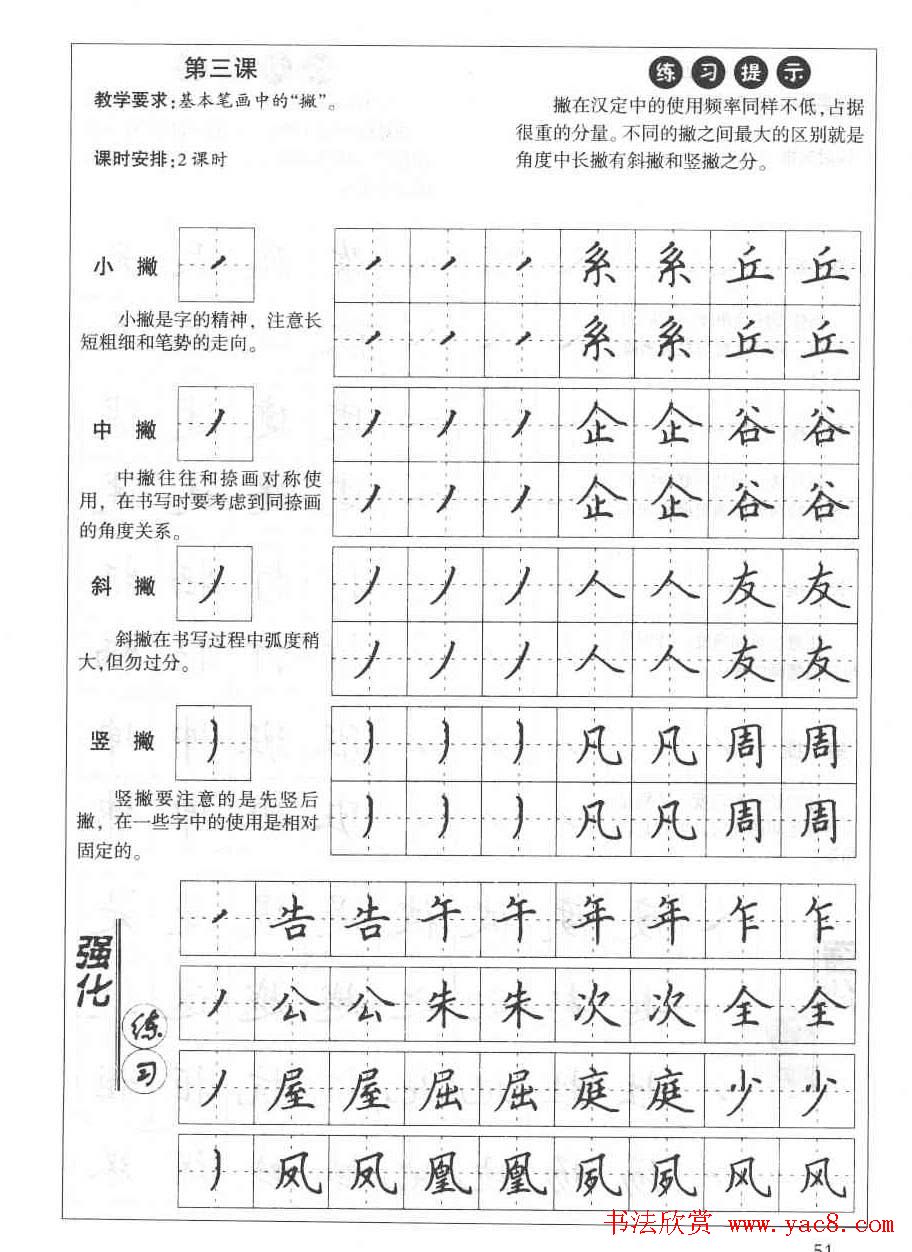 第三课
教学要求:基本笔画中的“撇”。
课时安排:2课时
练习提示
撇在汉定中的使用频率同样不低,占据
很重的分量。不同的撇之间最大的区别就是
角度中长撇有斜撇和竖撇之分。
小 撇
小撇是字的精神,注意长
短粗细和笔势的走向。
㇒ ㇒ ㇒ ㇒ 系 系 丘 丘
㇒ ㇒ ㇒ 系 系 丘 丘
中 撇
中撇往往和捺画对称使
用,在书写时要考虑到同捺画
的角度关系。
丿 丿 丿 丿 企 企 谷 谷
丿 丿 丿 企 企 谷 谷
斜 撇
斜撇在书写过程中弧度稍
大,但勿过分。
丿 丿 丿 丿 人 人 友 友
丿 丿 丿 人 人 友 友
竖 撇
竖撇要注意的是先竖后
撇,在一些字中的使用是相对
固定的。
丿 丿 丿 丿 凡 凡 周 周
丿 丿 丿 凡 凡 周 周
强化
练习
㇒ 告 告 午 午 年 年 乍 乍
丿 公 公 朱 朱 次 次 全 全
丿 屋 屋 屈 屈 庭 庭 少 少
丿 凤 凤 凰 凰 夙 夙 风 风
书法欣赏 www.yac8.com
51